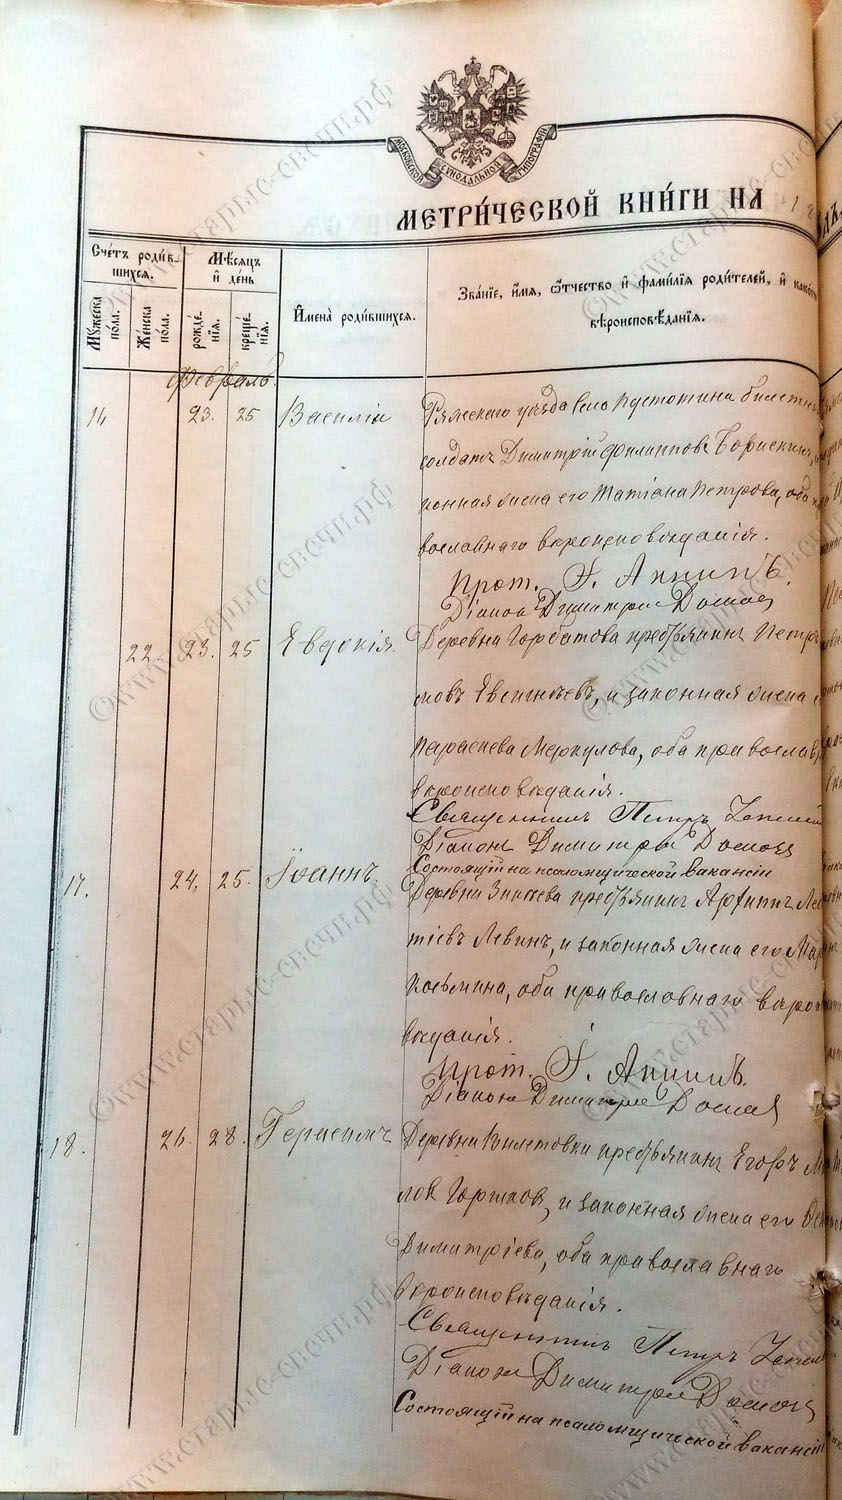 МОСКОВСКОЙ СѴНОДАЛЬНОЙ ТИПОГРАФІИ
МЕТРИ́ЧЕСКОЙ КНИ́ГИ НА 18
Счетъ роди́вшихся.
Мѹжеска по́ла.
Же́нска по́ла.
Мѣсяцъ и день
рожде́нїя.
креще́нїя.
И҆мена̀ роди́вшихся.
Зва́нїе, и҆́мя, ѻ҆́тчество и҆ фами́лїя роди́телей, и҆ како́гѡ
вѣроисповѣ́данїя.
Февраль.
16 23. 25 Василій Ряжскаго уѣзда села Пустотина билетн
солдатъ Димитрій Филипповъ Борискинъ,
конная жена его Татіана Петрова, оба
вославнаго вѣроисповѣданія.
Прот. І. Аппинъ.
Діаконъ Димитрій
22. 23. 25 Евдокія. Деревни Горбатова крестьянинъ Петръ
мовъ Евсигнѣевъ, и законная жена
Параскева Меркулова, оба православ
вѣроисповѣданія.
Священникъ Петръ
Діаконъ Димитрій
Состоящій на псаломщической вакансіи
17. 24. 25. Іоаннъ. Деревни крестьянинъ Архипъ Лео
тіевъ Левинъ, и законная жена его Мар
Козьмина, оба православнаго вѣроис
вѣданія.
Прот. І. Аппинъ.
Діаконъ Димитрій
18. 26. 28. Герасимъ Деревни крестьянинъ Егоръ
ловъ Горшковъ, и законная жена его
Димитріева, оба православнаго
вѣроисповѣданія.
Священникъ Петръ
Діаконъ Димитрій
Состоящій на псаломщической вакансіи
©www.старые-свечи.рф